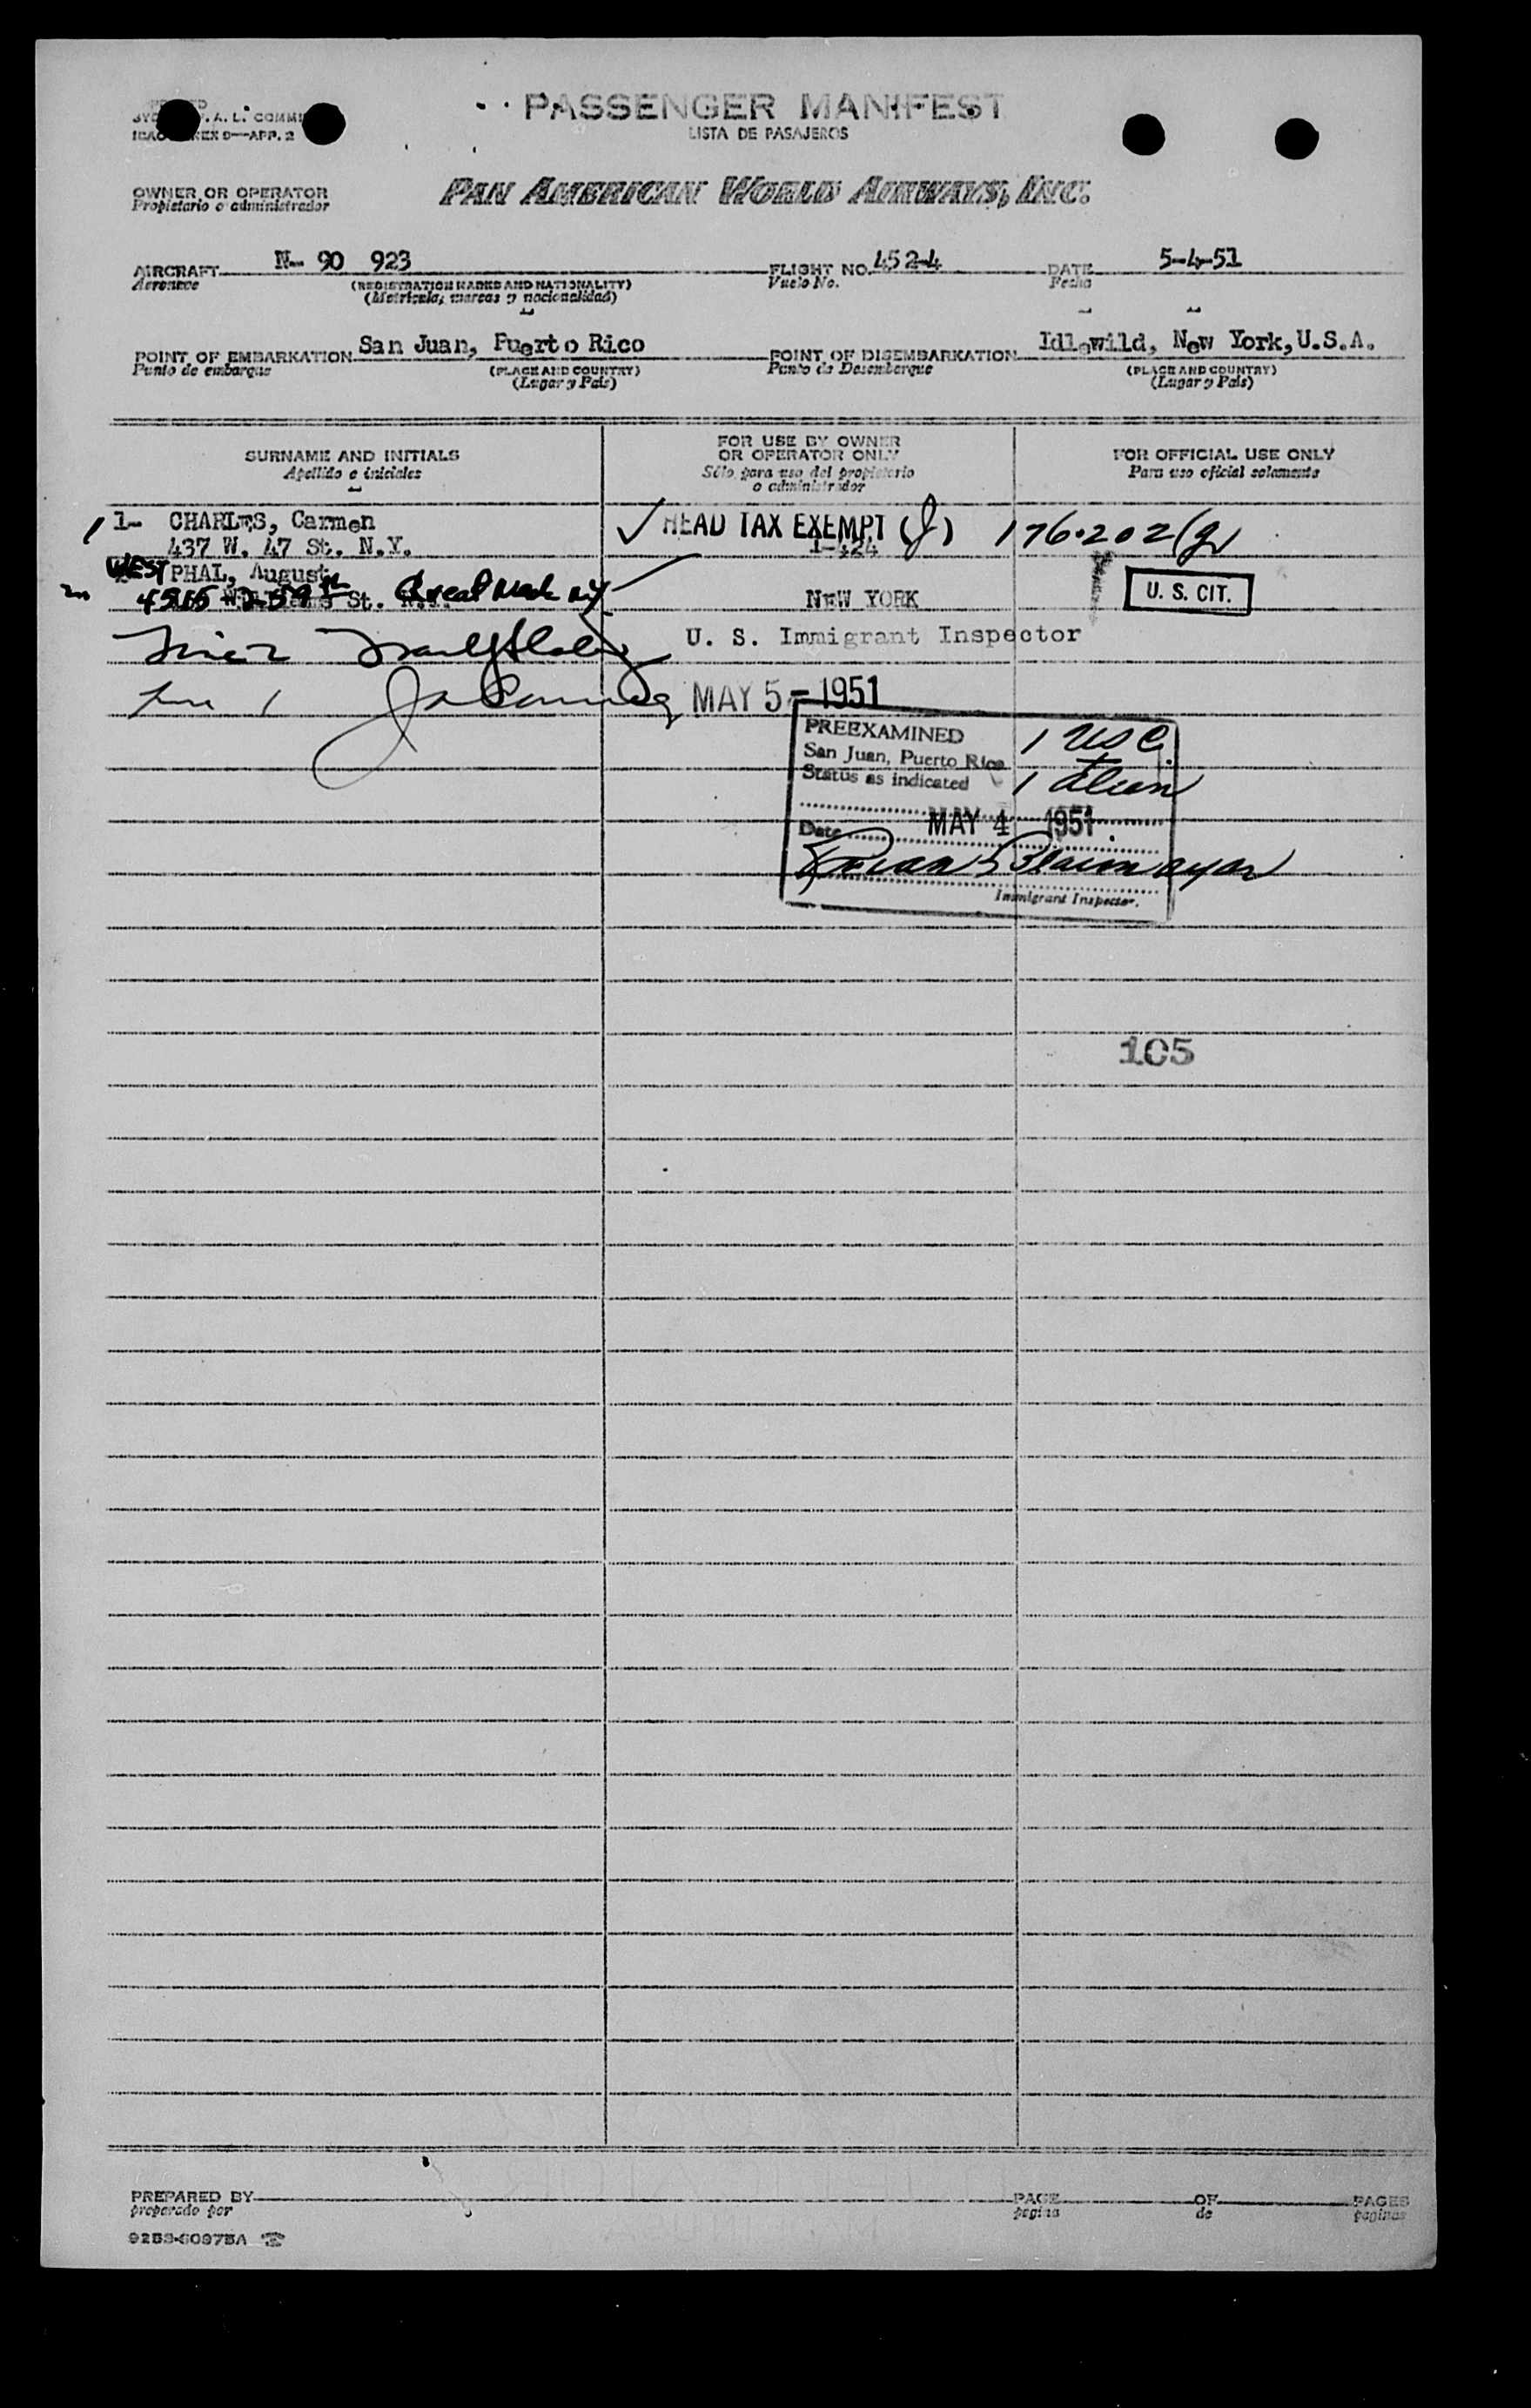 PASSENGER MANIFEST
LISTA DE PASAJEROS
A. L. COMMI
9—APP. 2
OWNER OR OPERATOR
Propietario o administrador
PAN AMERICAN WORLD AIRWAYS, INC.
AIRCRAFT N- 90 923 FLIGHT NO. 452-4 DATE 5-4-51
Aeronave (REGISTRATION MARKS AND NATIONALITY) Vuelo No. Fecha
(Matricula, marcas y nacionalidad)
POINT OF EMBARKATION San Juan, Puerto Rico POINT OF DISEMBARKATION Idlewild, New York, U.S.A.
Punto de embarque (PLACE AND COUNTRY) Punto de Desembarque (PLACE AND COUNTRY)
(Lugar y Pais) (Lugar y Pais)
SURNAME AND INITIALS
Apellido e iniciales
FOR USE BY OWNER
OR OPERATOR ONLY
Sólo para uso del propietario
o administrador
FOR OFFICIAL USE ONLY
Para uso oficial solamente
1 1- CHARLES, Carmen ✓ HEAD TAX EXEMPT (J) 176.202(g)
437 W. 47 St. N.Y. 1-424
WESTPHAL, August
St. Great Neck NY NEW YORK U. S. CIT.
U. S. Immigrant Inspector
MAY 5 - 1951
PREEXAMINED
San Juan, Puerto Rico
Status as indicated
1 USC
1 Alien
Date MAY 4 1951
Immigrant Inspector.
105
PREPARED BY PAGE OF PAGES
preparado por pagina de paginas
9253-60975A